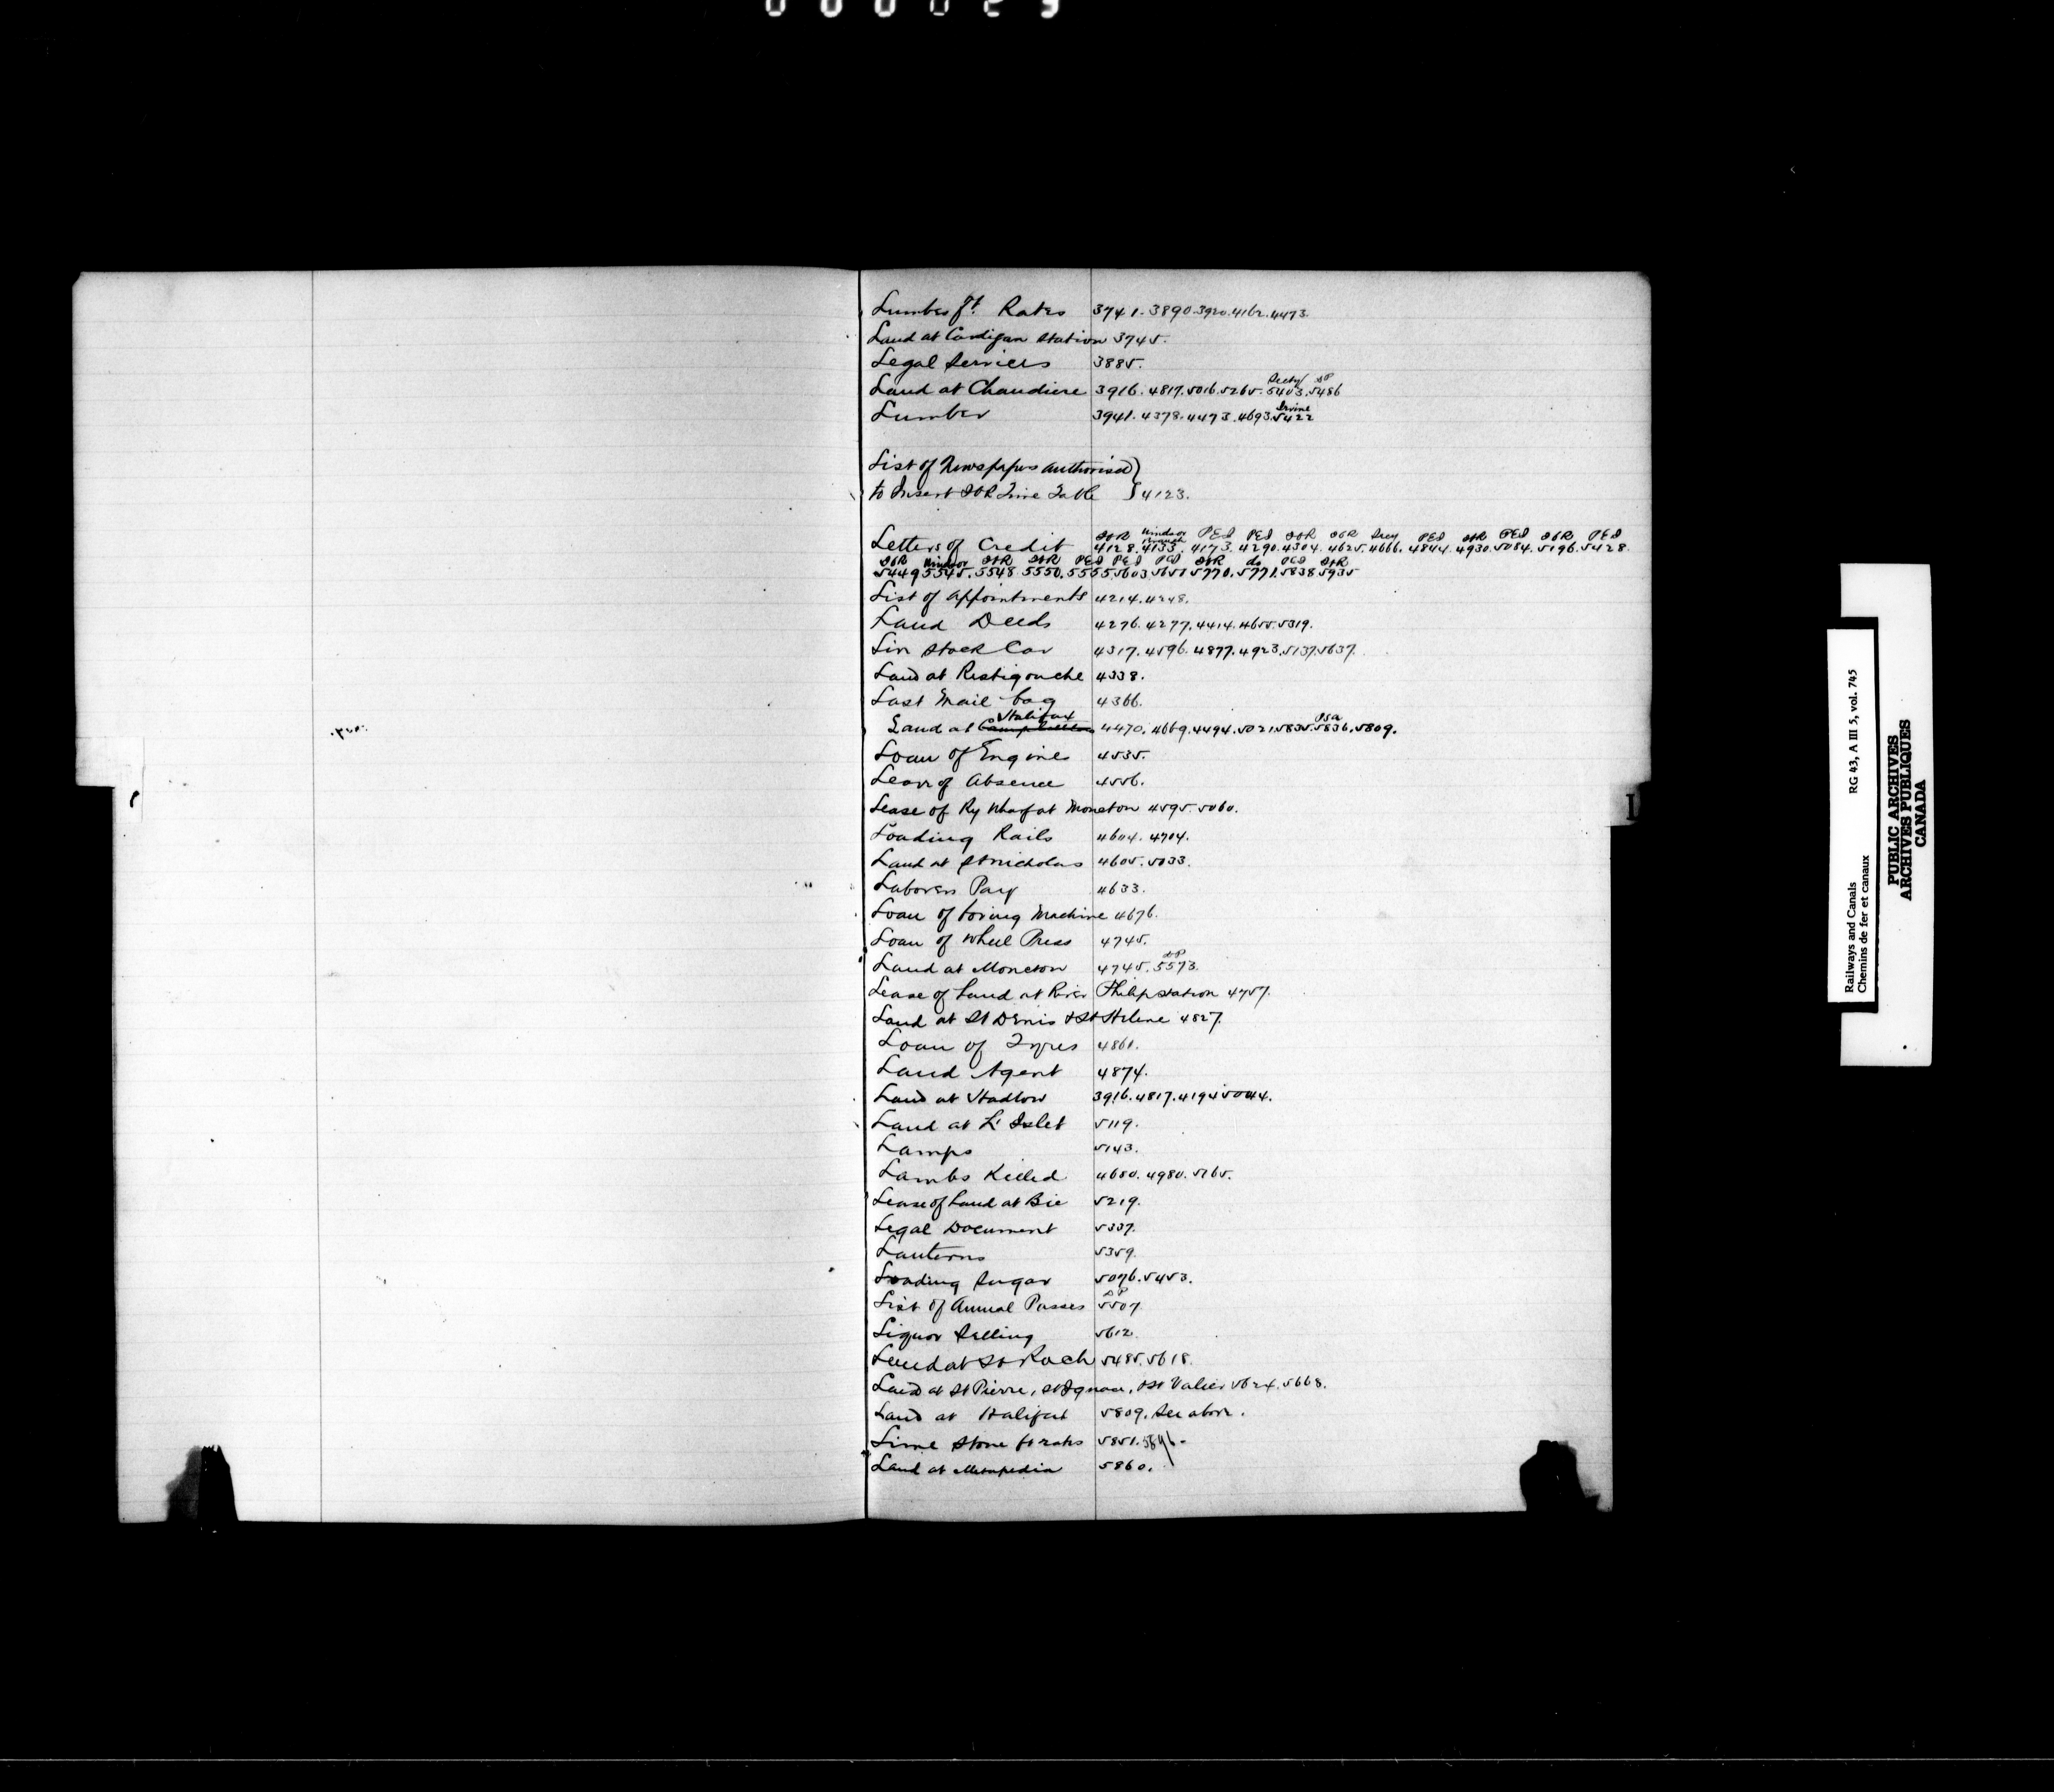 000023
Lumber ft. Rates 3741. 3890. 3920. 4162. 4473.
Land at Cardigan Station 3745.
Legal Services 3885.
Secty SP
Land at Chaudiere 3916. 4817. 5016. 5265. 5403. 5486
Irvine
Lumber 3941. 4378. 4473. 4693. 5422
List of Newspapers authorised
to Insert ICR Time Table } 4123.
ICR Windsor Branch PEI PEI ICR ICR Secy PEI ICR PEI ICR PEI
Letters of Credit 4128. 4133. 4173. 4290. 4304. 4625. 4666. 4844. 4930. 5084. 5196. 5428.
ICR Windsor ICR ICR PEI PEI PEI ICR do PEI ICR
5449 5545. 5548 5550. 5555 5603 5651 5770. 5771. 5838 5935
List of Appointments 4214. 4248.
Land Deeds 4276. 4277. 4414. 4655. 5319.
Live Stock Car 4317. 4596. 4877. 4923. 5137. 5637.
Land at Restigouche 4338.
Lost Mail bag 4366.
Halifax
Land at Campbellton 4470. 4669. 4494. 5021. 5835. 5836. 5809.
Loan of Engines 4535.
Leave of Absence 4556.
Lease of Ry Wharf at Moncton 4595. 5060.
Loading Rails 4604. 4704.
Land at St Nicholas 4605. 5033.
Laborers Pay 4633.
Loan of boring Machine 4676.
Loan of Wheel Press 4745.
SP
Land at Moncton 4745. 5573.
Lease of Land at River Philip Station 4757.
Land at St Denis & St Helene 4827.
Loan of Tyres 4861.
Land Agent 4874.
Land at Hadlow 3916. 4817. 4194 5044.
Land at L'Islet 5119.
Lamps 5143.
Lambs Killed 4680. 4980. 5165.
Lease of Land at Bic 5219.
Legal Document 5337.
Lanterns 5359.
Loading Sugar 5076. 5453.
SP
List of Annual Passes 5507.
Liquor Selling 5612
Land at St Roch 5485. 5618.
Land at St Pierre, St Ignace, & St Valier 5624. 5668.
Land at Halifax 5809. See above.
Lime Stone ft rates 5851. 5846.
Land at Metapedia 5860.
L
Railways and Canals RG 43, A III 5, vol. 745
Chemins de fer et canaux
PUBLIC ARCHIVES
ARCHIVES PUBLIQUES
CANADA